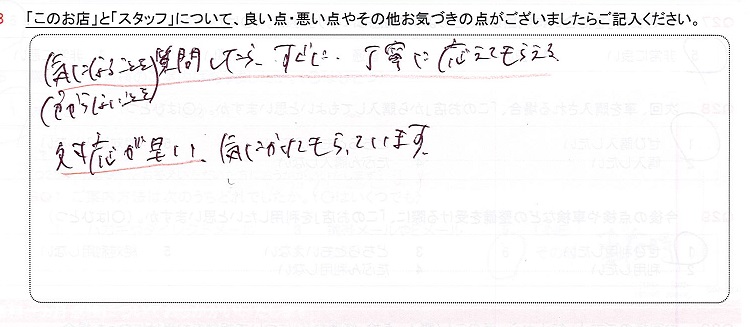 「このお店」と「スタッフ」について、良い点・悪い点やその他お気づきの点がございましたらご記入ください。
(気になることを)質問したら、すぐに、丁寧に応えてもらえる
(分からないことを)
対応が早い、気にかけてもらっています。